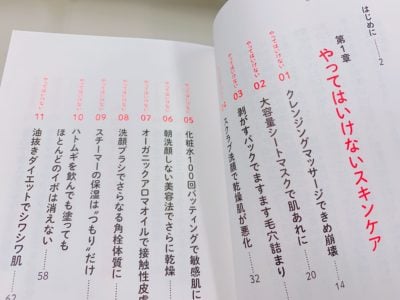 はじめに……2
第1章
やってはいけないスキンケア
やってはいけない 01
クレンジングマッサージできめ崩壊……14
やってはいけない 02
大容量シートマスクで肌あれに……20
やってはいけない 03
剥がすパックでますます毛穴詰まり
スクラブ洗顔で乾燥肌が悪化……32
やってはいけない 05
化粧水100回パッティングで敏感肌に
やってはいけない 06
朝洗顔しない美容法でさらに乾燥
やってはいけない 07
オーガニックアロマオイルで接触性皮膚
やってはいけない 08
洗顔ブラシでさらなる角栓体質に
やってはいけない 09
スチーマーの保湿は“つもり”だけ
やってはいけない 10
ハトムギを飲んでも塗っても
ほとんどのイボは消えない……58
やってはいけない 11
油抜きダイエットでシワシワ肌……62